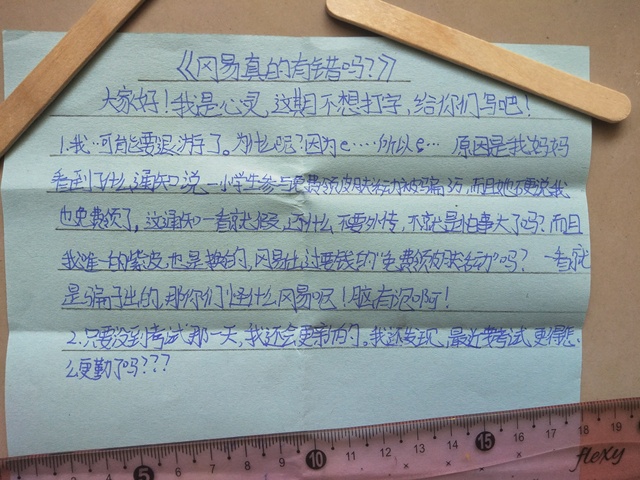 《网易真的有错吗?》
大家好!我是心灵,这期不想打字,给你们写吧!
1.我··可能要退游了。为什么呢?因为e····所以e··· 原因是我妈妈
看到了什么通知说一小学生参与免费领皮肤活动被骗 万,而且她硬说我
也免费领了。这通知一看就假,还什么不要外传,不就是怕事大了吗?而且
我唯一的紫皮也是换的,网易出过要钱的"免费领皮肤活动"吗? 一看就
是骗子出的,那你们怪什么网易呢!脑有泡啊!
2.只要没到考试那一天,我还会更新的。我还发现,最近要考试,更得怎
么更勤了吗???
5 6 7 8 9 10 11 12 13 14 15 16 17 18 19
flexy